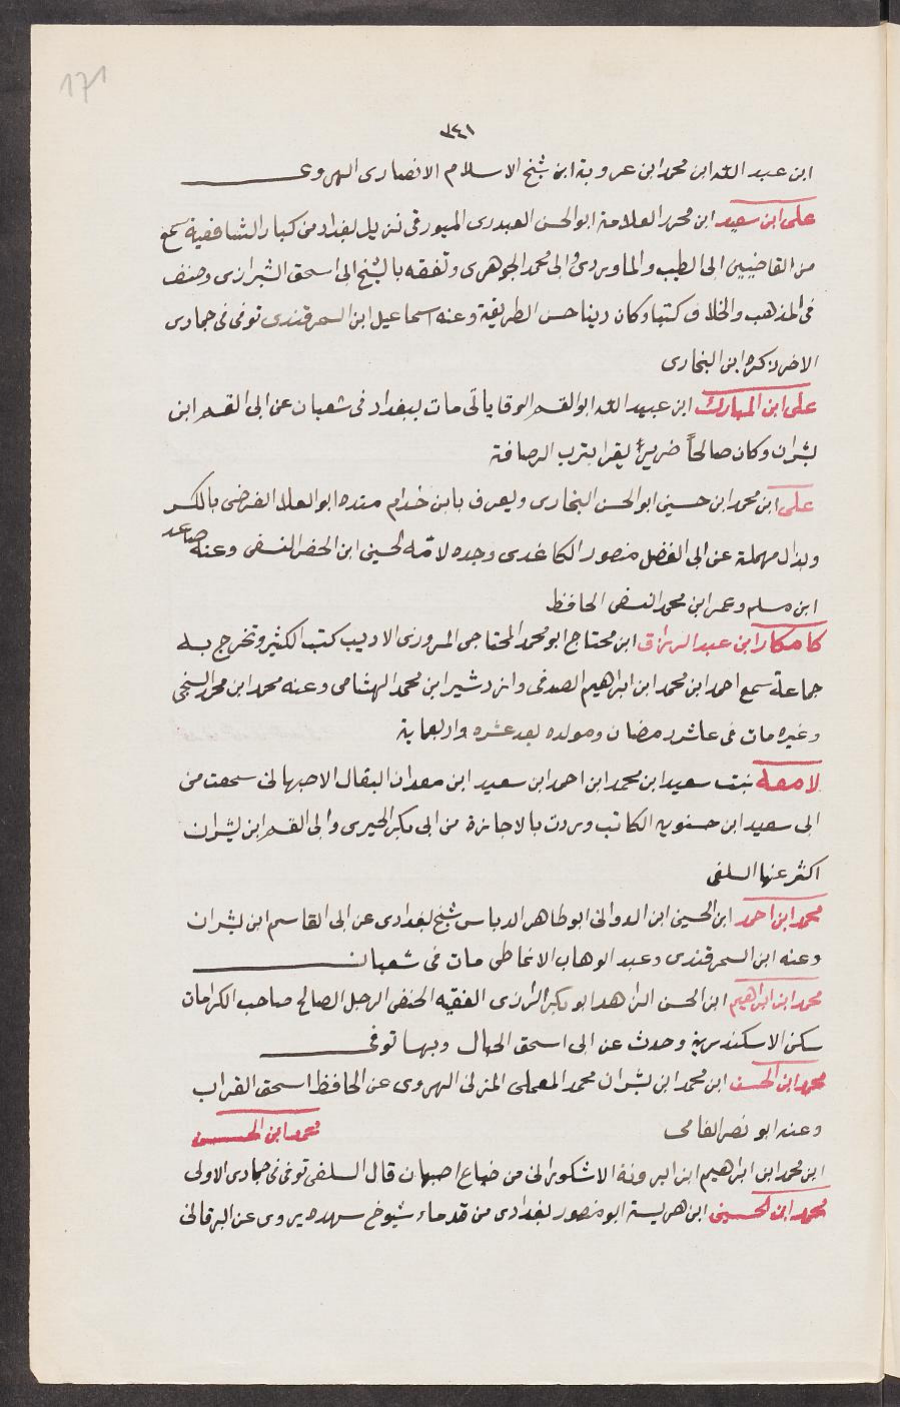 171
٣٤١
ابن عبد الله ابن محمد ابن عروبة ابن شيخ الاسلام الانصارى الهروى
على ابن سعيد ابن محرر العلامة ابو الحسن العبدرى الميورقى نزيل بغداد من كبار الشافعية سمع
من القاضيين ابى الطيب والماوردى وابى محمد الجوهرى وتفقه بالشيخ ابى اسحق الشيرازى وصنف
فى المذهب والخلاف كتبا وكان دينا حسن الطريقة وعنه اسماعيل ابن السمرقندى توفى فى جمادى
الاخر ذكره ابن البخارى
على ابن المبارك ابن عبيد الله ابو القسم الوقاياتى مات ببغداد فى شعبان عن ابى القسم ابن
بشران وكان صالحاً ضريرًا يقرا بترب الرصافة
على ابن محمد ابن حسين ابو الحسن البخارى ويعرف بابن خدام ابو العلا الفرضى بالكسر
وبدال مهملة عن ابى الفضل منصور الكاغدى وجده لامّه الحسين ابن الخضر النسفى وعنه صاعد
ابن مسلم وعمر ابن محمد النسفى الحافظ
كامكار ابن عبد الرزاق ابن محتاج ابو محمد المحتاجى المروزى الاديب كتب الكثير وتخرج به
جماعة سمع احمد ابن محمد ابن ابراهيم الصدفى وازدشير ابن محمد الهشامى وعنه محمد ابن محمد السنجى
وغيره مات فى عاشر رمضان ومولده بعد عشره واربعماية
لامعة بنت سعيد ابن محمد ابن احمد ابن سعيد ابن معدان البقال الاصبهانى سمعت من
ابى سعيد ابن حسنويه الكاتب وروت بالاجازة من ابى بكر الحيرى وابى القسم ابن بشران
اكثر عنها السلفى
محمد ابن احمد ابن الحسين ابن الدواتى ابو طاهر الدباس شيخ بغدادى عن ابى القاسم ابن بشران
وعنه ابن السمرقندى وعبد الوهاب الانماطى مات فى شعبان
محمد ابن ابراهيم ابن الحسن الزاهد ابو بكر الرازى الفقيه الحنفى الرجل الصالح صاحب الكرامات
سكن الاسكندرية وحدث عن ابى اسحق الحبال وبها توفى
محمد ابن الحسن ابن محمد ابن بشران محمد المعملى المزنى الهروى عن الحافظ اسحق القراب
وعنه ابو نصر الفامى محمد ابن الحسن
ابن محمد ابن ابراهيم ابن ابرونة الاشكورانى من ضياع اصبهان قال السلفى توفى فى جمادى الاولى
محمد ابن الحسين ابن هريسة ابو منصور بغدادى من قدماء شيوخ شهده يروى عن البرقانى